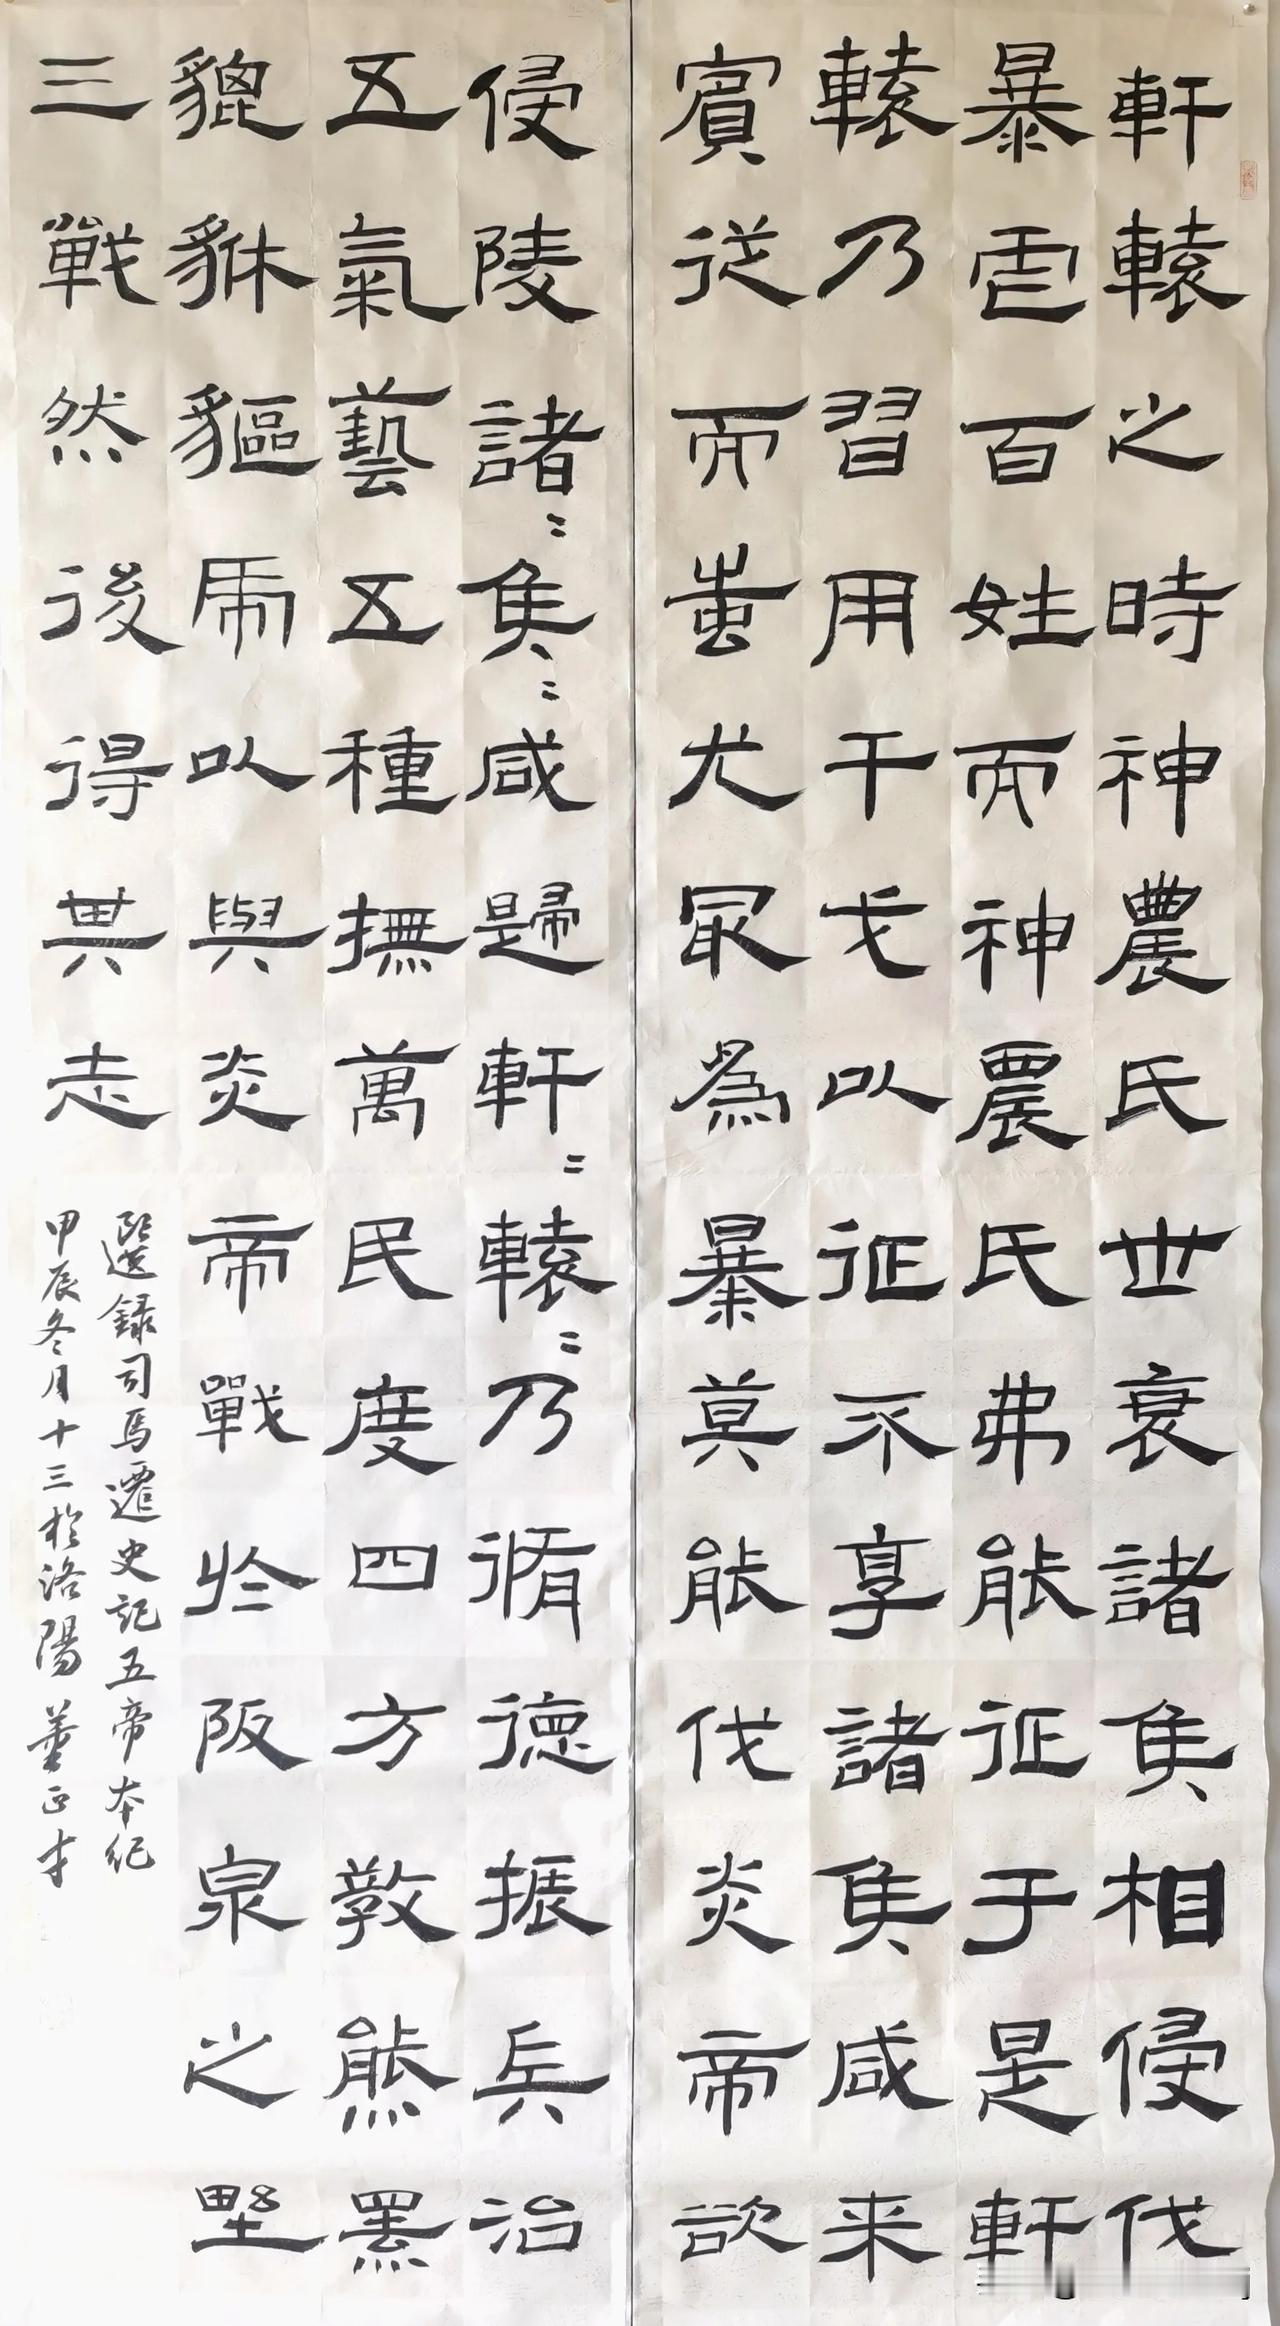 軒轅之時神農氏世衰諸侯相侵伐
暴虐百姓而神農氏弗能征于是軒
轅乃習用干戈以征不享諸侯咸来
賓從而蚩尤最為暴莫能伐炎帝欲
侵陵諸〻侯〻咸歸軒〻轅〻乃脩德振兵治
五氣藝五種撫萬民度四方教熊羆
貔貅貙虎以與炎帝戰於阪泉之野
三戰然後得其志
選錄司馬遷史記五帝本紀
甲辰冬月十三於洛陽董正才